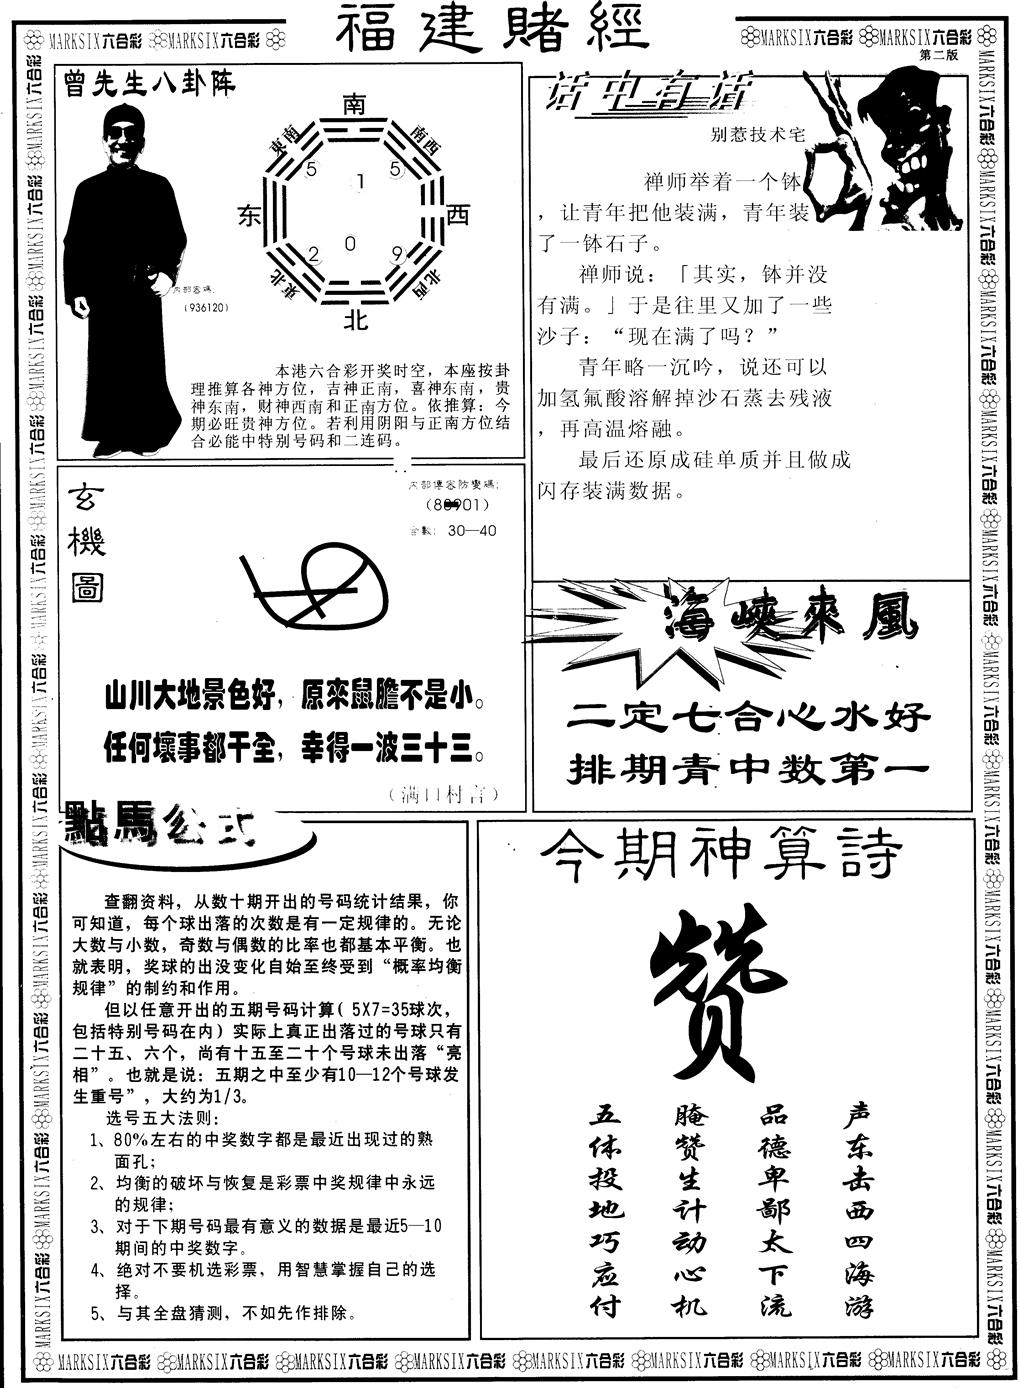 福建賭經
MARKSIX六合彩 MARKSIX六合彩
MARKSIX六合彩 MARKSIX六合彩
第二版
曾先生八卦阵
南
東南
南西
5
1
5
东
西
2
0
9
東北
北西
北
内部密碼:
(936120)
本港六合彩开奖时空，本座按卦
理推算各神方位，吉神正南，喜神东南，贵
神东南，财神西南和正南方位。依推算：今
期必旺贵神方位。若利用阴阳与正南方位结
合必能中特别号码和二连码。
话中有话
别惹技术宅
禅师举着一个钵
，让青年把他装满，青年装
了一钵石子。
禅师说：「其实，钵并没
有满。」于是往里又加了一些
沙子：“现在满了吗？”
青年略一沉吟，说还可以
加氢氟酸溶解掉沙石蒸去残液
，再高温熔融。
最后还原成硅单质并且做成
闪存装满数据。
玄機圖
内部傳密防變碼:
合數: 30—40
山川大地景色好，原來鼠膽不是小。
任何壞事都干全，幸得一波三十三。
（满口村言）
海峽來風
二定七合心水好
排期青中数第一
點馬公式
查翻资料，从数十期开出的号码统计结果，你
可知道，每个球出落的次数是有一定规律的。无论
大数与小数，奇数与偶数的比率也都基本平衡。也
就表明，奖球的出没变化自始至终受到“概率均衡
规律”的制约和作用。
但以任意开出的五期号码计算( 5X7=35球次，
包括特别号码在内) 实际上真正出落过的号球只有
二十五、六个，尚有十五至二十个号球未出落“亮
相”。也就是说：五期之中至少有10—12个号球发
生重号”，大约为1/3。
选号五大法则：
1、80%左右的中奖数字都是最近出现过的熟
面孔；
2、均衡的破坏与恢复是彩票中奖规律中永远
的规律；
3、对于下期号码最有意义的数据是最近5—10
期间的中奖数字。
4、绝对不要机选彩票，用智慧掌握自己的选
择。
5、与其全盘猜测，不如先作排除。
今期神算詩
赞
声东击西四海游
品德卑鄙太下流
腌赞生计动心机
五体投地巧应付
MARKSIX六合彩 MARKSIX六合彩 MARKSIX六合彩 MARKSIX六合彩 MARKSIX六合彩 MARKSIX六合彩 MARKSIX六合彩 MARKSIX六合彩